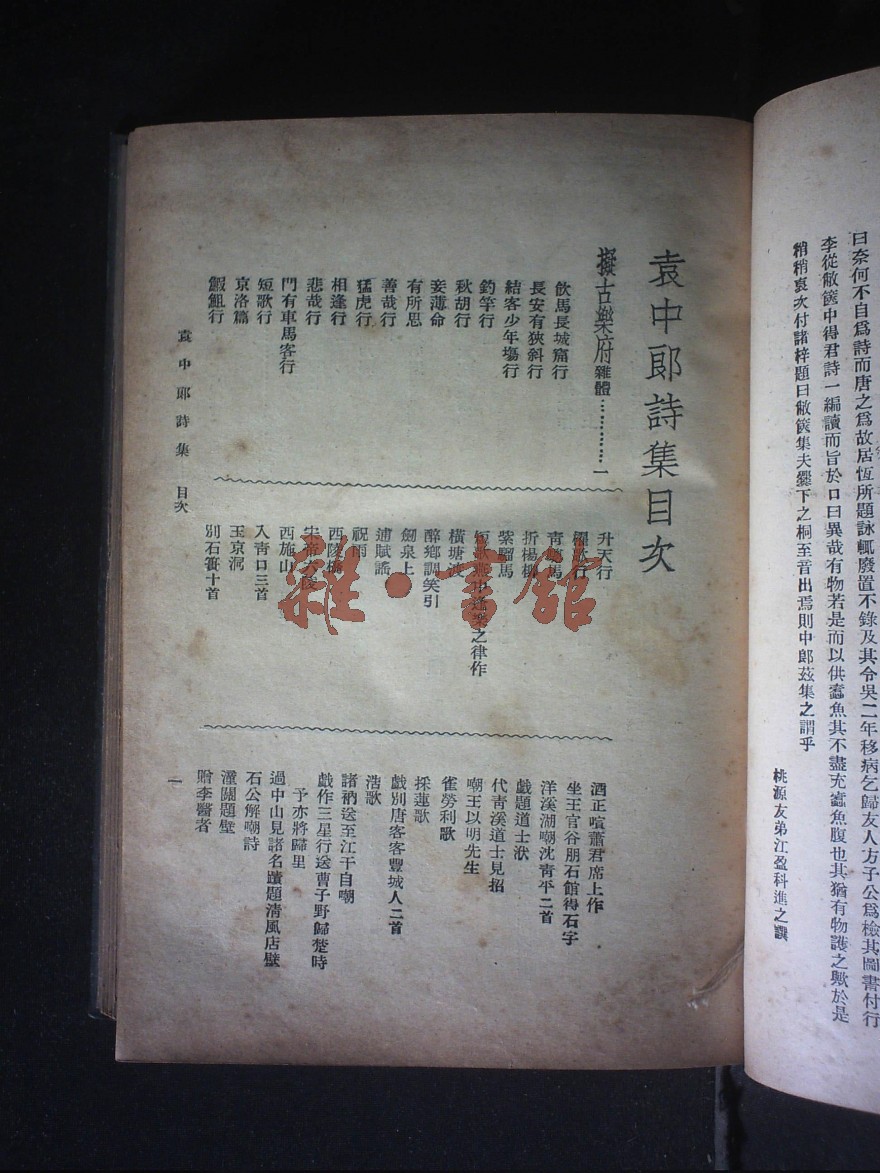 曰奈何不自爲詩而唐之爲故居恆所題詠輒廢置不錄及其令吳二年移病乞歸友人方子公爲檢其圖書付行
李從敝篋中得君詩一編讀而旨於口曰異哉有物若是而以供蠹魚其不盡充蠹魚腹也其猶有物護之歟於是
稍稍裒次付諸梓題曰敝篋集夫爨下之桐至音出焉則中郎茲集之謂乎
桃源友弟江盈科進之譔
袁中郎詩集目次
擬古樂府雜體…………一
飲馬長城窟行
長安有狹斜行
結客少年塲行
釣竿行
秋胡行
妾薄命
有所思
善哉行
猛虎行
相逢行
悲哉行
門有車馬客行
短歌行
京洛篇
鰕䱇行
升天行
折楊柳
紫騮馬
短歌燕中逢梁之律作
橫塘渡
醉鄉調笑引
劍泉上
浦賦謠
祝雨
西陵橋
西施山
入青口三首
玉京洞
別石簣十首
酒正喧蕭君席上作
坐王官谷朋石館得石字
洋溪湖嘲沈青平二首
戲題道士洑
代青溪道士見招
嘲王以明先生
雀勞利歌
採蓮歌
戲別唐客客豐城人二首
浩歌
諸衲送至江干自嘲
戲作三星行送曹子野歸楚時
予亦將歸里
過中山見諸名蹟題清風店壁
石公解嘲詩
潼關題壁
贈李醫者
袁中郎詩集 目次
一
雜·書館